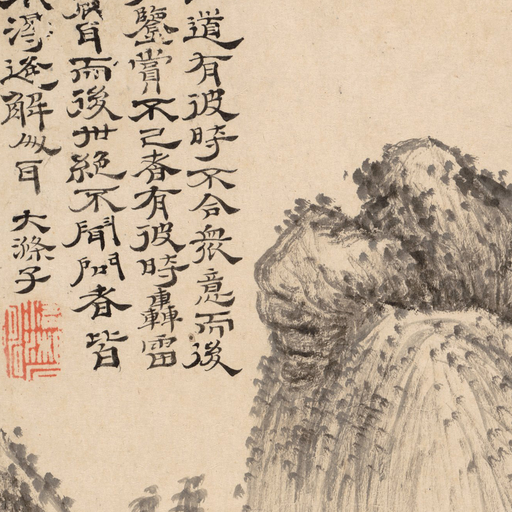 道有彼時不合眾意而後
鑒賞不已者有彼時轟雷
耳而後世絕不聞問者皆
遙解㕥耳
大滌子